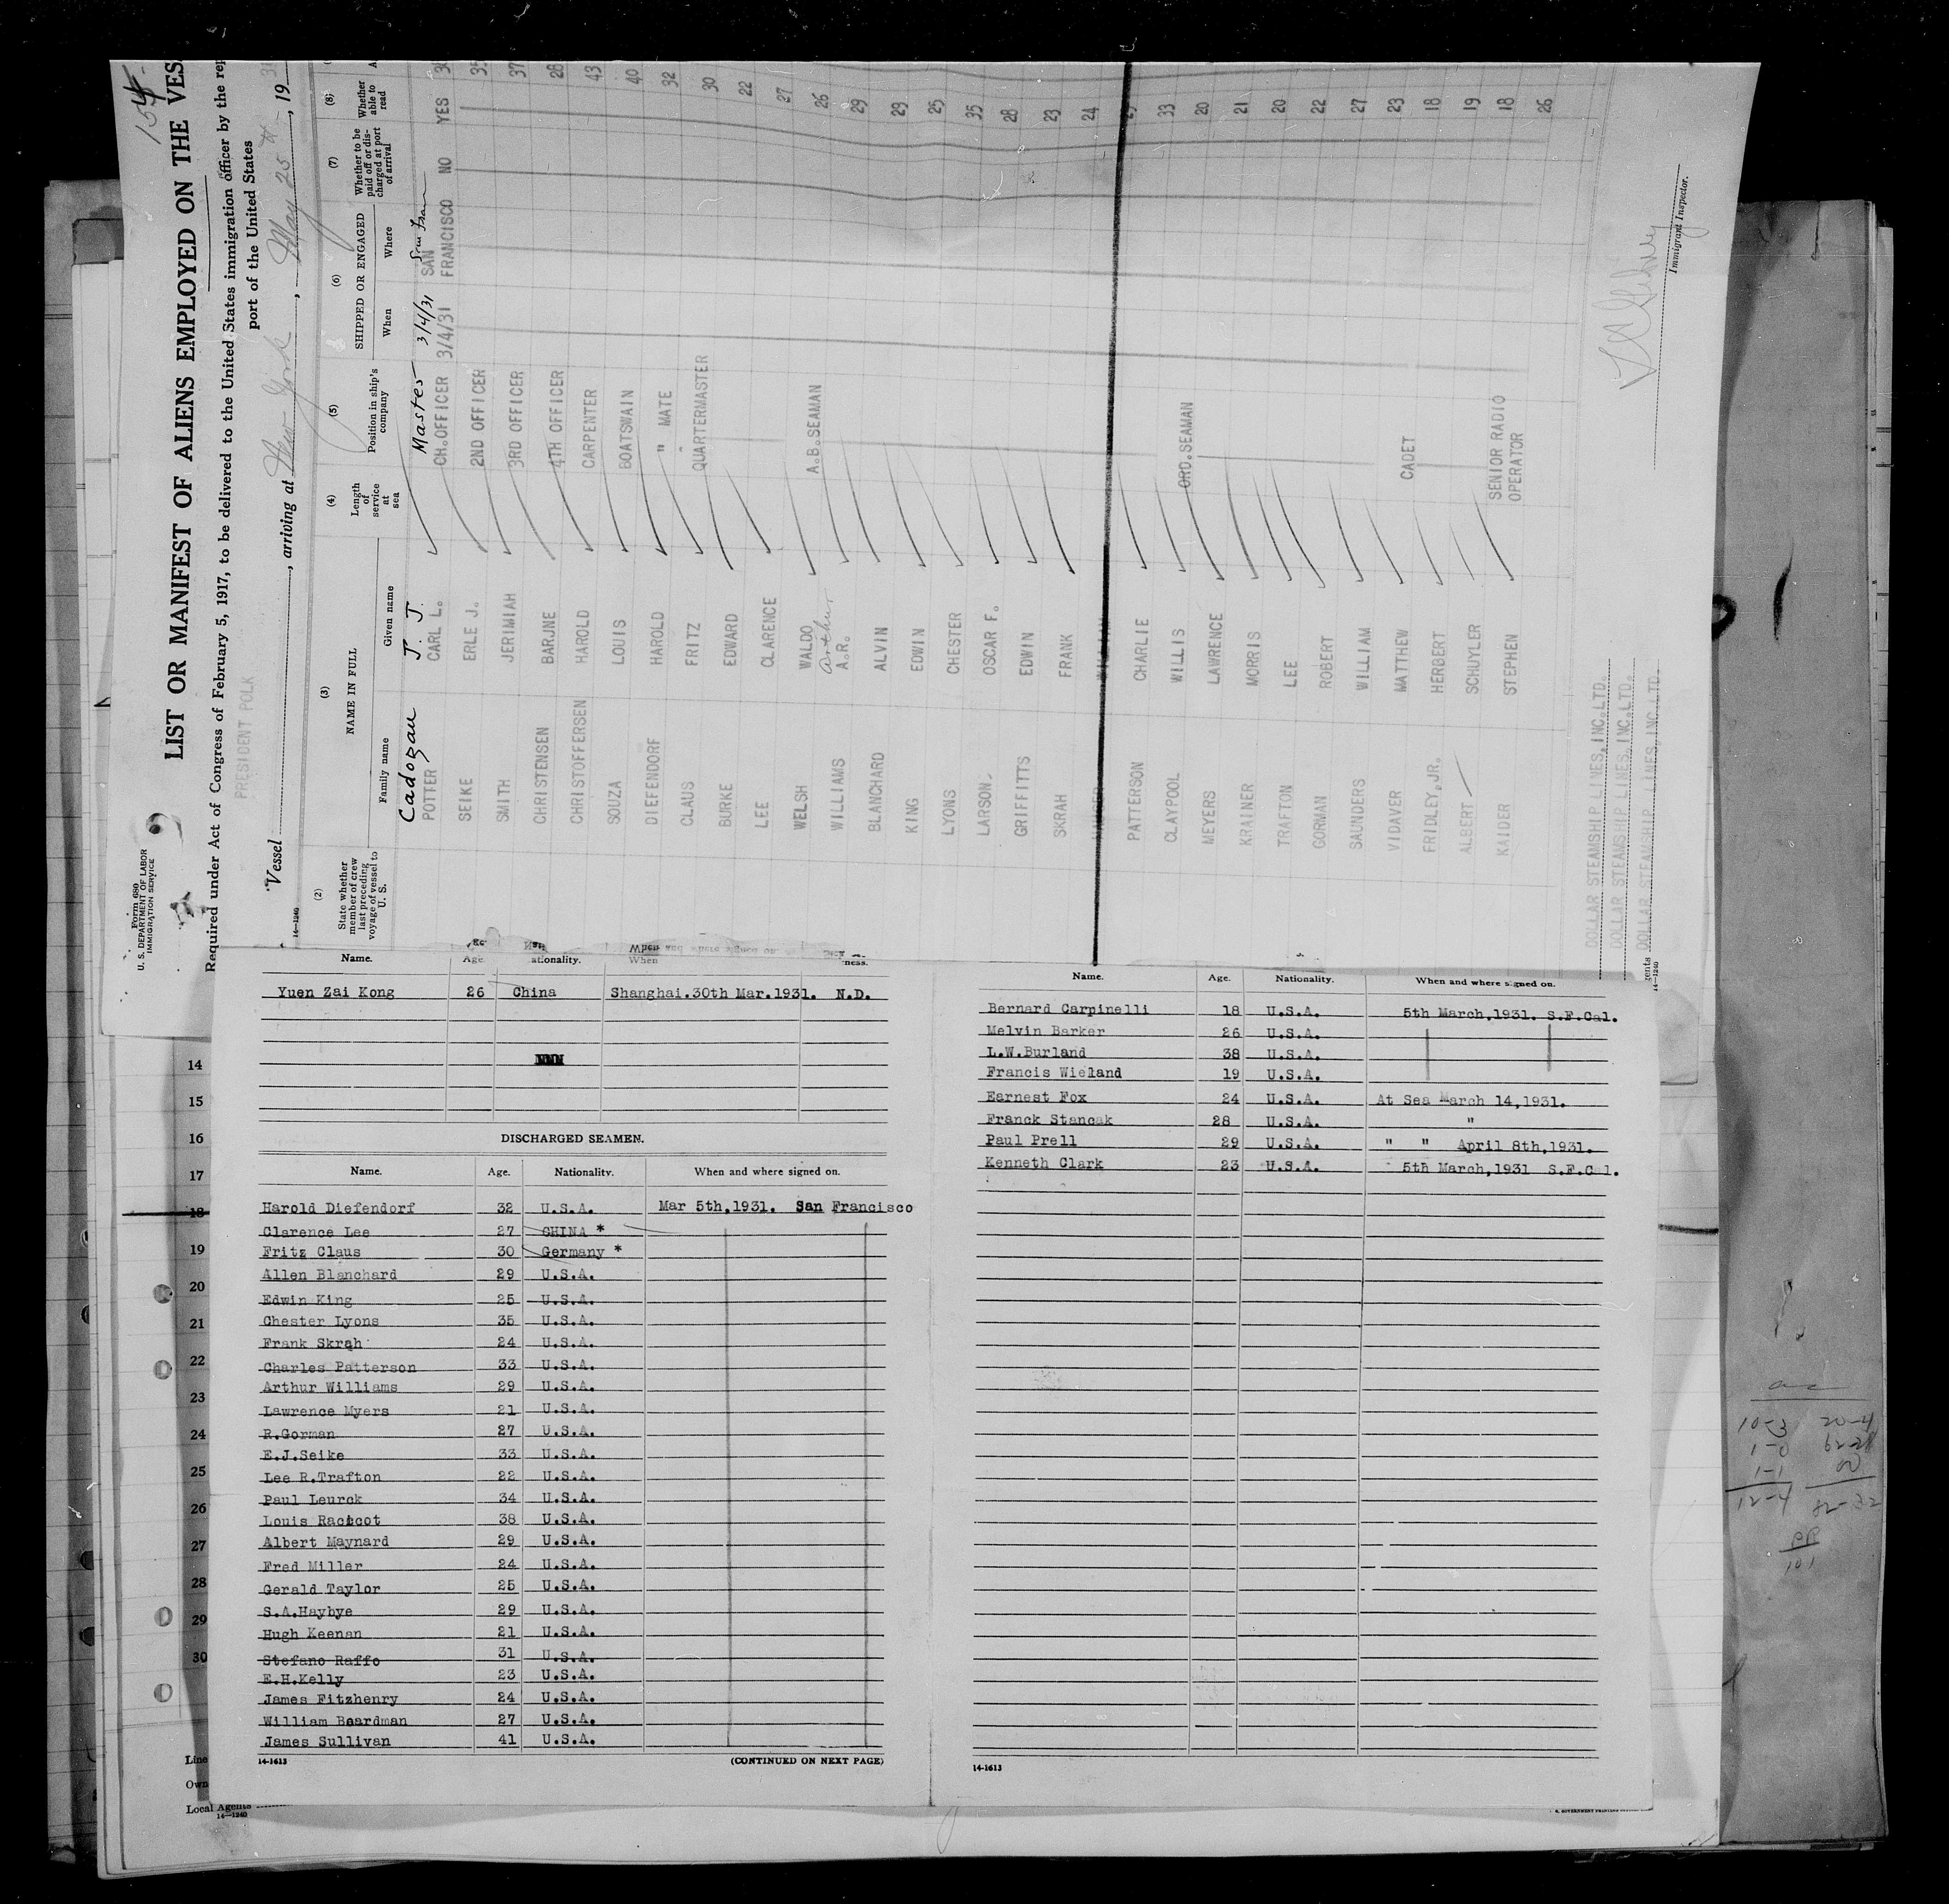 Form 680
U. S. DEPARTMENT OF LABOR
IMMIGRATION SERVICE
154
LIST OR MANIFEST OF ALIENS EMPLOYED ON THE VES
Required under Act of Congress of February 5, 1917, to be delivered to the United States immigration officer by the rep
port of the United States
PRESIDENT POLK
Vessel , arriving at New York , May 25th , 19 31
14—1240
(2) (3) (4) (5) (6) (7) (8)
State whether member of crew last preceding voyage of vessel to U. S.
NAME IN FULL
Family name Given name
Length of service at sea
Position in ship's company
SHIPPED OR ENGAGED
When Where
Whether to be paid off or discharged at port of arrival
Whether able to read
Cadogan J. J. Master 3/4/31 San Fran
POTTER CARL L. CH.OFFICER 3/4/31 SAN FRANCISCO NO YES
SEIKE ERLE J. 2ND OFFICER
SMITH JERIMIAH 3RD OFFICER 37
CHRISTENSEN BARJNE 4TH OFFICER 28
CHRISTOFFERSEN HAROLD CARPENTER 43
SOUZA LOUIS BOATSWAIN 40
DIEFENDORF HAROLD " MATE 32
CLAUS FRITZ QUARTERMASTER 30
BURKE EDWARD 22
LEE CLARENCE 27
WELSH WALDO A.B.SEAMAN 26
WILLIAMS Arthur A.R. 29
BLANCHARD ALVIN 29
KING EDWIN 25
LYONS CHESTER 35
LARSON OSCAR F. 28
GRIFFITTS EDWIN 23
SKRAH FRANK 24
PATTERSON CHARLIE 33
CLAYPOOL WILLIS ORD.SEAMAN 20
MEYERS LAWRENCE 21
KRAINER MORRIS 20
TRAFTON LEE 22
GORMAN ROBERT 27
SAUNDERS WILLIAM 23
VIDAVER MATTHEW CADET 18
FRIDLEY,JR. HERBERT 19
ALBERT SCHUYLER 18
KAIDER STEPHEN SENIOR RADIO OPERATOR 26
DOLLAR STEAMSHIP LINES,INC.LTD.
DOLLAR STEAMSHIP LINES,INC.LTD.
DOLLAR STEAMSHIP LINES,INC.LTD.
14—1240
Immigrant Inspector.
Name. Age. Nationality. When
Yuen Zai Kong 26 China Shanghai.30th Mar.1931. N.D.
DISCHARGED SEAMEN.
Name. Age. Nationality. When and where signed on.
Harold Diefendorf 32 U.S.A. Mar 5th,1931. San Francisco
Clarence Lee 27 CHINA *
Fritz Claus 30 Germany *
Allen Blanchard 29 U.S.A.
Edwin King 25 U.S.A.
Chester Lyons 35 U.S.A.
Frank Skrah 24 U.S.A.
Charles Patterson 33 U.S.A.
Arthur Williams 29 U.S.A.
Lawrence Myers 21 U.S.A.
R.Gorman 27 U.S.A.
E.J.Seike 33 U.S.A.
Lee R.Trafton 22 U.S.A.
Paul Leurck 34 U.S.A.
Louis Racicot 38 U.S.A.
Albert Maynard 29 U.S.A.
Fred Miller 24 U.S.A.
Gerald Taylor 25 U.S.A.
S.A.Haybye 29 U.S.A.
Hugh Keenan 21 U.S.A.
Stefano Raffo 31 U.S.A.
E.H.Kelly 23 U.S.A.
James Fitzhenry 24 U.S.A.
William Boardman 27 U.S.A.
James Sullivan 41 U.S.A.
14-1613 (CONTINUED ON NEXT PAGE)
Name. Age. Nationality. When and where signed on.
Bernard Carpinelli 18 U.S.A. 5th March,1931. S.F.Cal.
Melvin Barker 26 U.S.A.
L.W.Burland 38 U.S.A.
Francis Wieland 19 U.S.A.
Earnest Fox 24 U.S.A. At Sea March 14,1931.
Franck Stancak 28 U.S.A. "
Paul Prell 29 U.S.A. " " April 8th,1931.
Kenneth Clark 23 U.S.A. 5th March,1931 S.F.Cal.
14-1613
14
15
16
17
18
19
20
21
22
23
24
25
26
27
28
29
30
Line
Own
Local Agents
14—1240
10-3 20-4
1-0
1-1
12-4
101